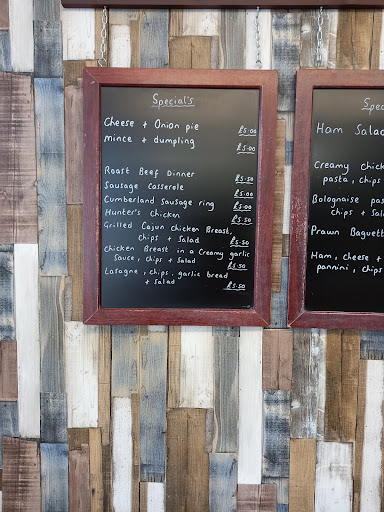 Special's
Cheese + Onion pie £5.00
mince + dumpling £5.00
Roast Beef Dinner £5.50
Sausage Casserole £5.00
Cumberland Sausage ring £5.00
Hunter's Chicken £5.50
Grilled Cajun Chicken Breast,
Chips + Salad £5.50
Chicken Breast in a Creamy garlic
Sauce, chips + Salad £5.50
Lasagne, chips, garlic bread
+ Salad £5.50
Spec
Ham Salad
Creamy chick
pasta, chips
Bolognaise pas
Chips + Sala
Prawn Baguett
Ham, cheese +
pannini, Chips